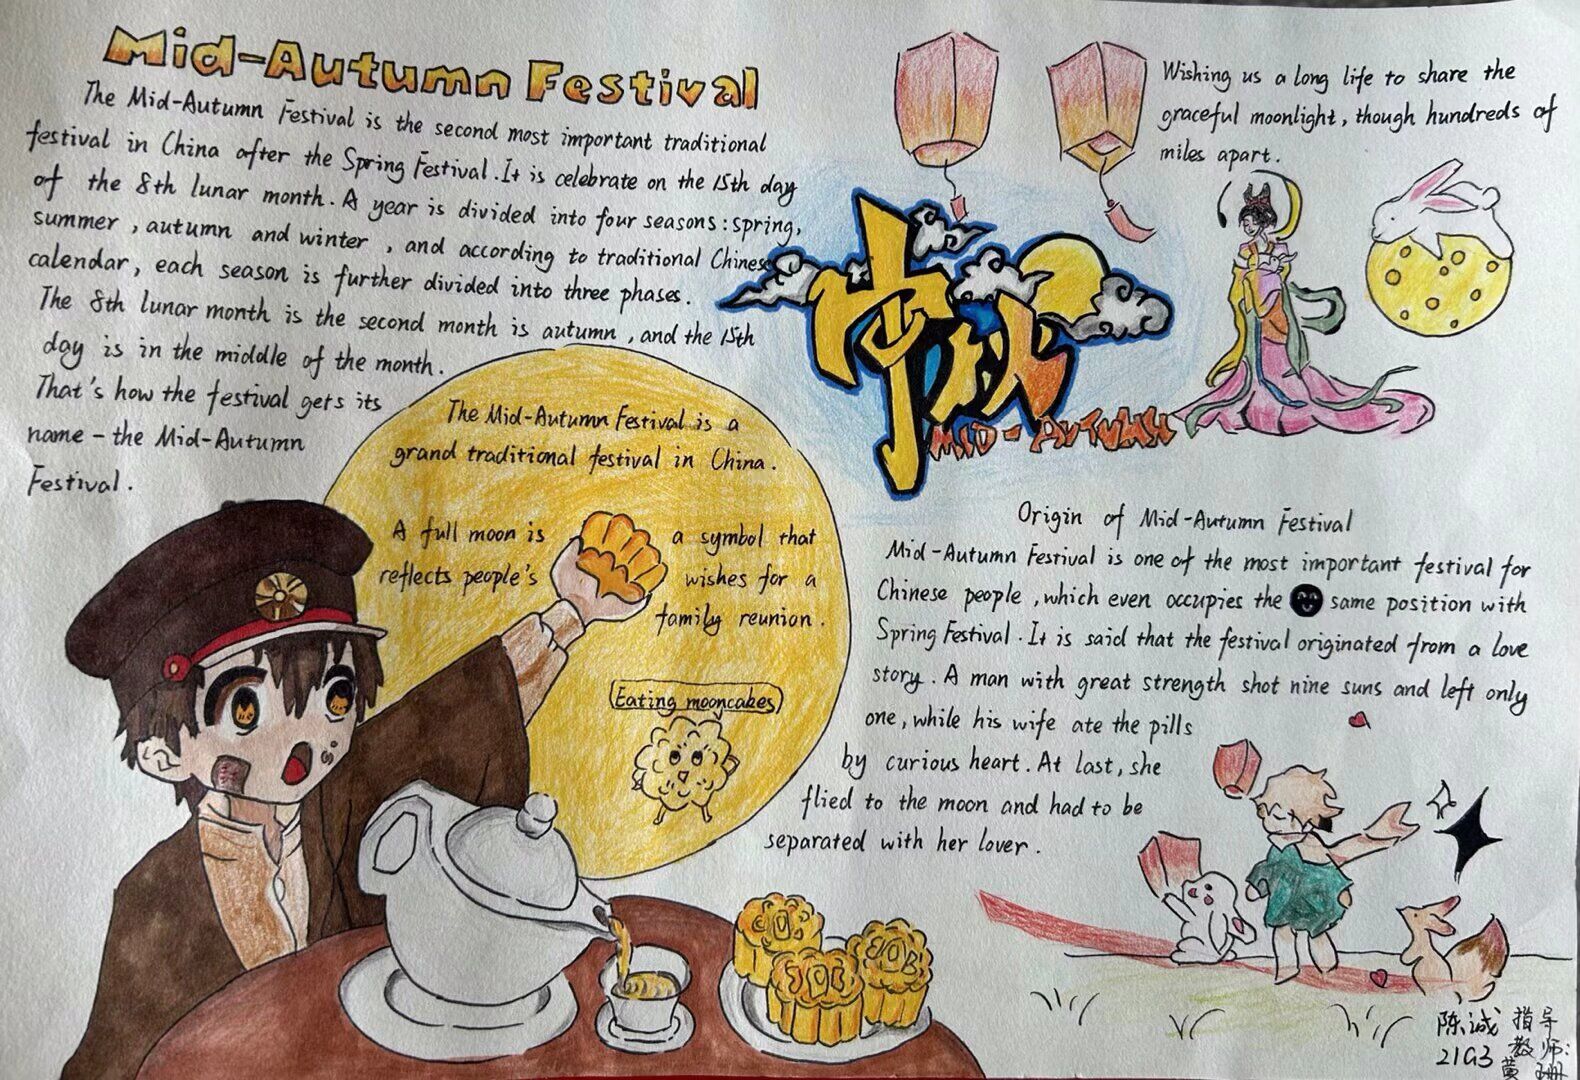 Mid-Autumn Festival
The Mid-Autumn Festival is the second most important traditional
festival in China after the Spring Festival. It is celebrate on the 15th day
of the 8th lunar month. A year is divided into four seasons: spring,
summer, autumn and winter, and according to traditional Chinese
calendar, each season is further divided into three phases.
The 8th lunar month is the second month is autumn, and the 15th
day is in the middle of the month.
That's how the festival gets its
name - the Mid-Autumn
Festival.
The Mid-Autumn Festival is a
grand traditional festival in China.
A full moon is a symbol that
reflects people's wishes for a
family reunion.
Eating mooncakes
Wishing us a long life to share the
graceful moonlight, though hundreds of
miles apart.
中秋
MID-AUTUMN
Origin of Mid-Autumn Festival
Mid-Autumn Festival is one of the most important festival for
Chinese people, which even occupies the same position with
Spring Festival. It is said that the festival originated from a love
story. A man with great strength shot nine suns and left only
one, while his wife ate the pills
by curious heart. At last, she
flied to the moon and had to be
separated with her lover.
陈诚 指导
21G3 教师:
黄珊